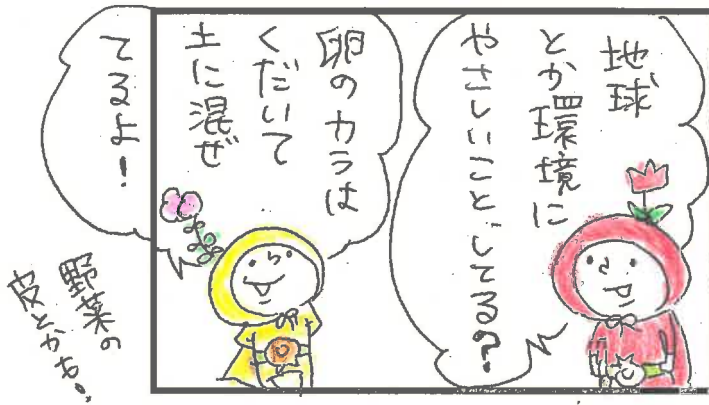 地球
とか環境に
やさしいことしてるの?
卵のカラは
くだいて
土に混ぜ
てるよ!
野菜の
皮とかも!